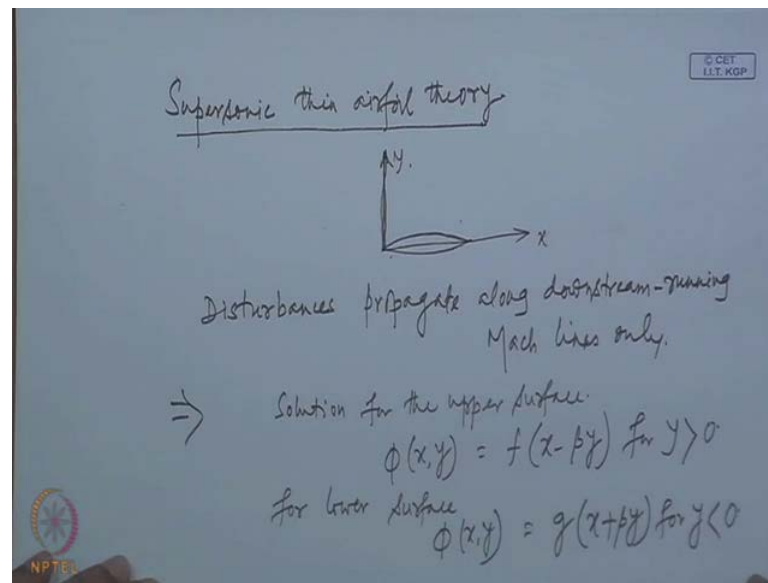 © CET
I.I.T. KGP
Supersonic thin airfoil theory
y.
x
Disturbances propagate along downstream-running
Mach lines only.
⇒ Solution for the upper surface.
ϕ(x,y) = f(x-βy) for y>0
for lower surface
ϕ(x,y) = g(x+βy) for y<0
NPTEL